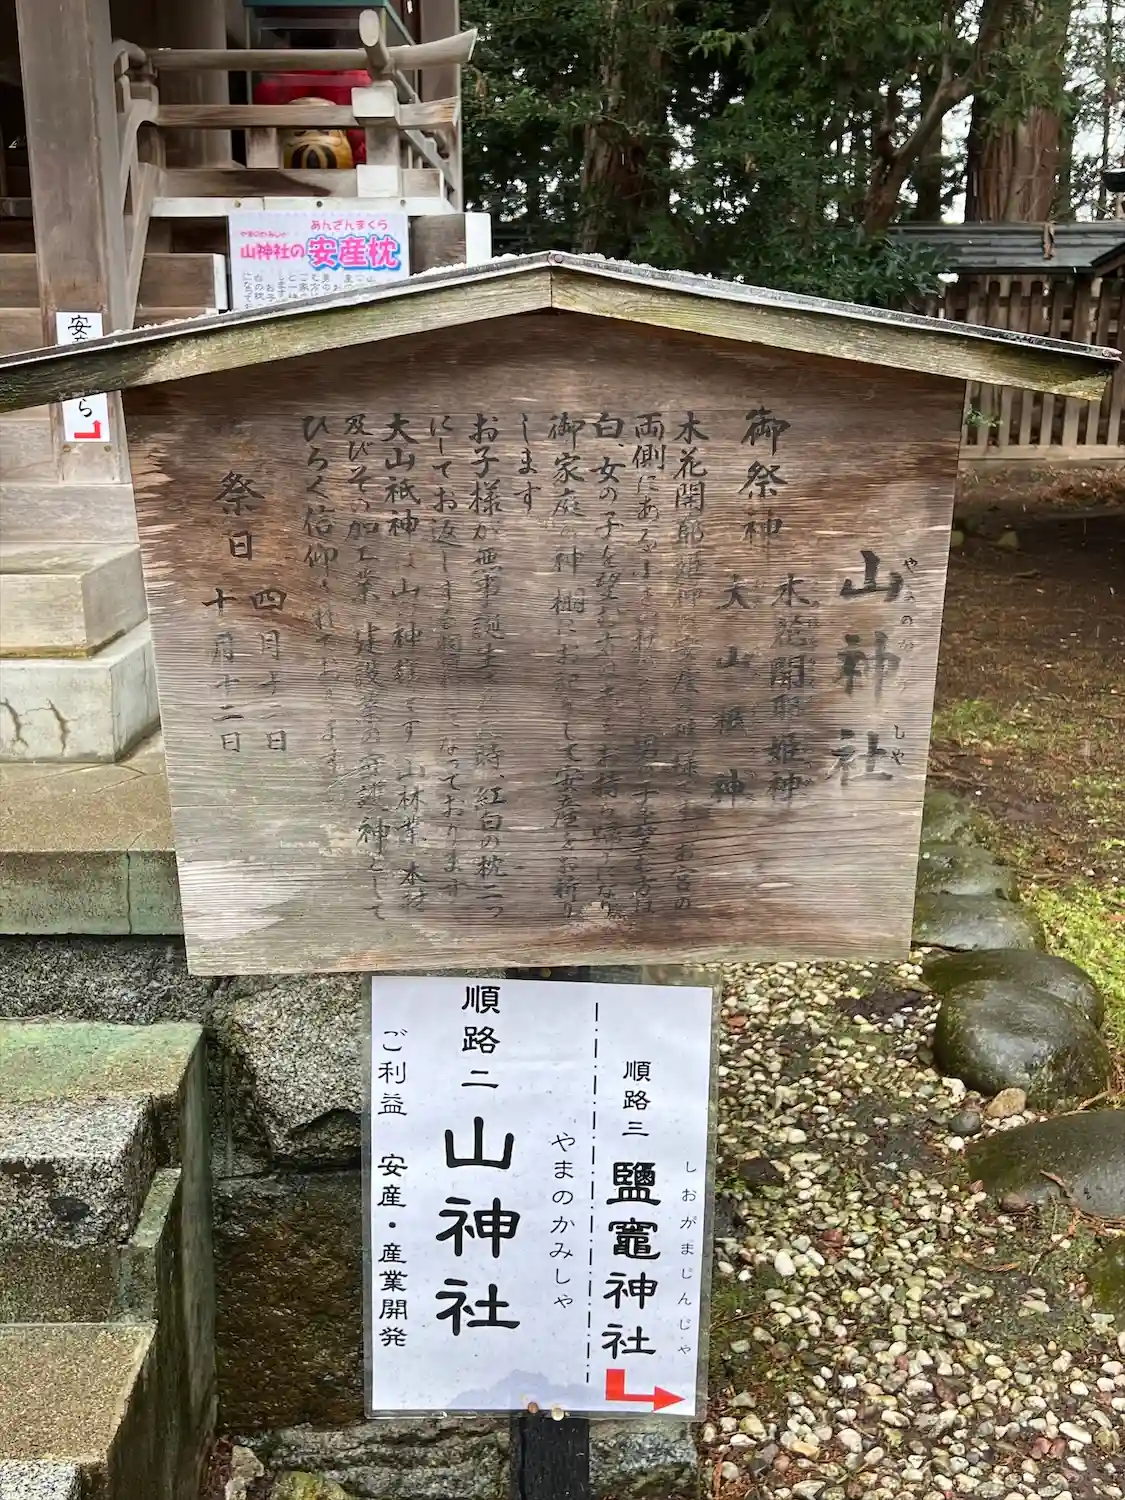 あんざんまくら
やまのかみしゃ
山神社の安産枕
山神社
御祭神
木花開耶姫神
大山祇神
木花開耶姫神は安産の神様です お宮の
両側にある
白、女の子を望む方は赤をお持ち帰りになり
御家庭の神棚にお祀りして安産をお祈り
します
お子様が無事誕生した時、紅白の枕二つ
にしてお返しする
になっております
大山祇神は山の神様です 山林業、木材
及びその加工業、建設業の守護神として
ひろく信仰されております
祭日
四月十二日
十月十二日
順路三
しおがまじんじゃ
鹽竈神社
順路二
やまのかみしゃ
山神社
ご利益 安産・産業開発